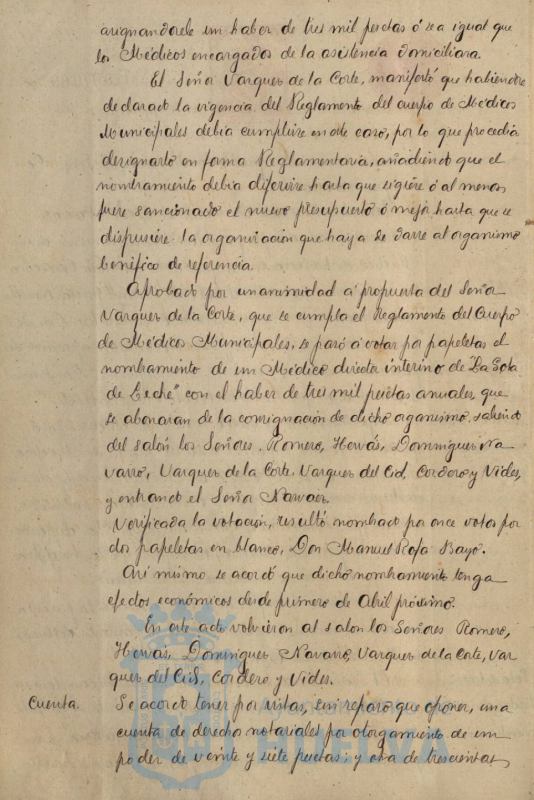 asignandosele un haber de tres mil pesetas ó sea igual que
los Médicos encargados de la asistencia domiciliaria.
El Señor Vazquez de la Corte, manifestó que habiendose
declarado la vigencia del Reglamento del cuerpo de Médicos
Municipales debia cumplirse en este caso, por lo que procedia
designarlo en forma Reglamentaria, añadiendo que el
nombramiento debia diferirse hasta que al menos
fuere sancionado el nuevo presupuesto ó mejor hasta que se
dispusiere la organización que haya de darse al organismo
benéfico de referencia.
Aprobado por unanimidad á propuesta del Señor
Vazquez de la Corte, que se cumpla el Reglamento del Cuerpo
de Médicos Municipales, se pasó á votar por papeletas el
nombramiento de un Médico director interino de "La Gota
de Leche" con el haber de tres mil pesetas anuales, que
se abonaran de la consignación de dicho organismo, saliendo
del salón los Señores. Romero, Hervás, Dominguez Na
varro, Vazquez de la Corte, Vazquez del Cid, Cordero y Vides,
y entrando el Señor Narvaez.
Verificada la votación, resultó nombrado por once votos por
dos papeletas en blanco, Don Manuel Rofa Bayo.
Asi mismo se acordó que dicho nombramiento tenga
efectos económicos desde primero de Abril próximo.
En este acto volvieron al salon los Señores Romero,
Hervás, Dominguez Navarro, Vazquez de la Corte, Vaz
quez del Cid, Cordero y Vides.
Cuenta. Se acordó tener por vistas, sin reparo que oponer, una
cuenta de derecho notariales por otorgamiento de un
HUELVA
poder de veinte y siete pesetas; y otra de trescientas